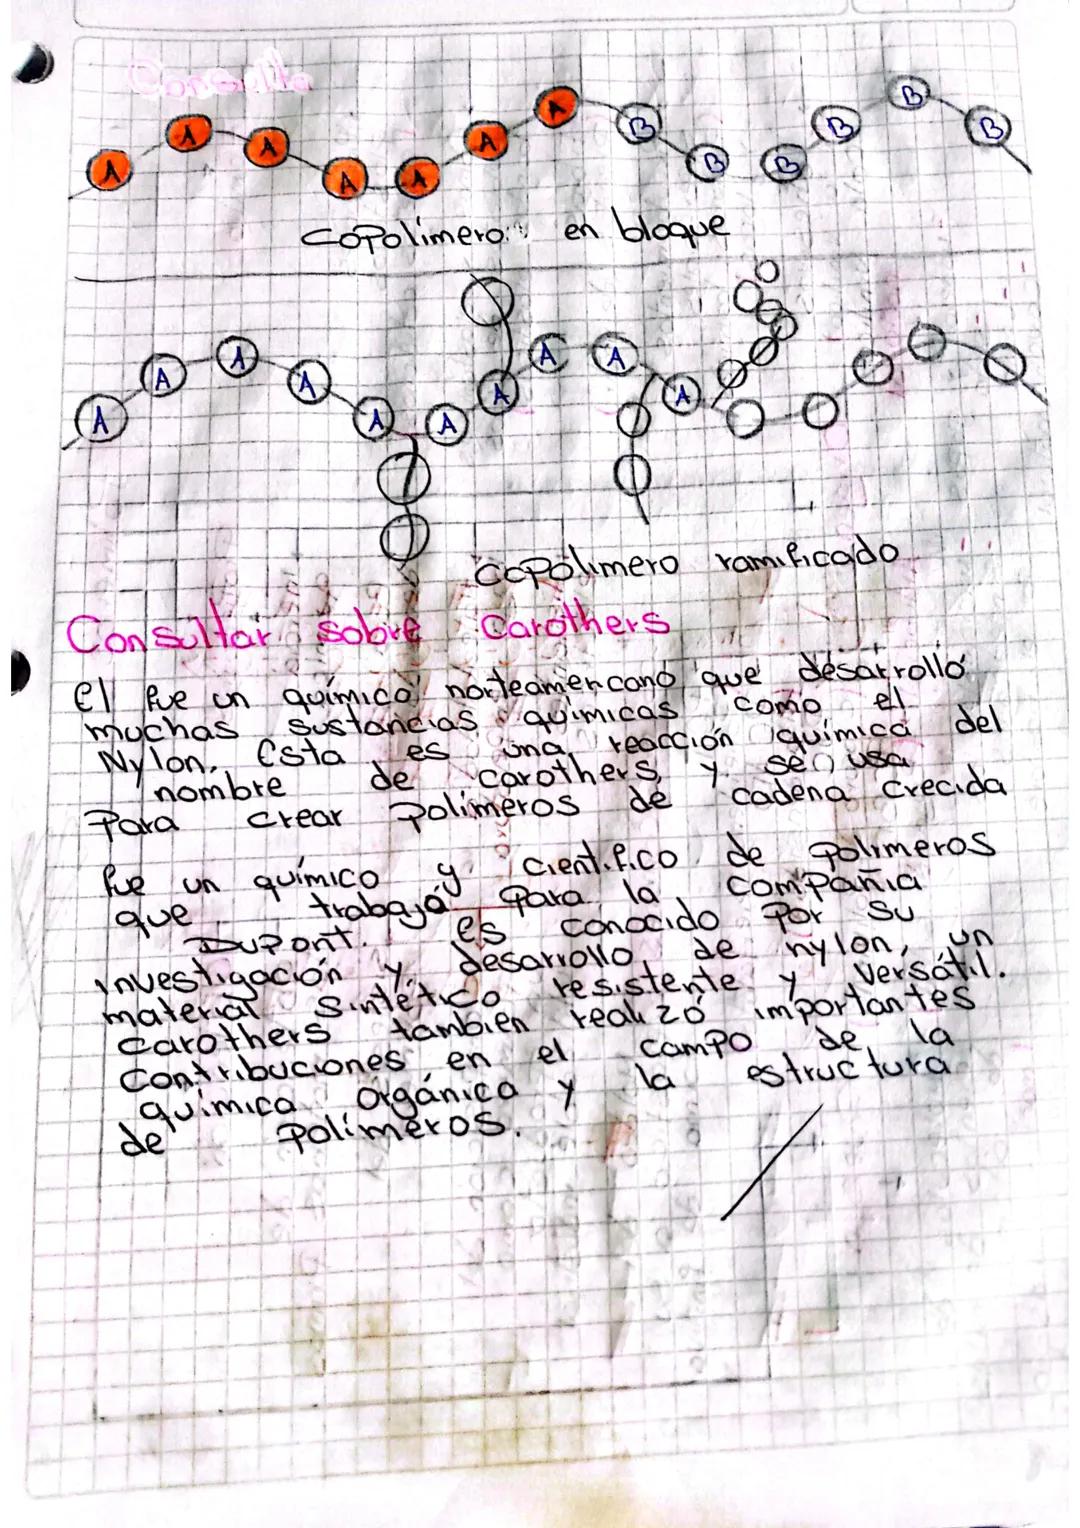 Consulta
A A A A A A A B B B B B B
Copolímero en bloque
A A A A A A A A A A
Copolimero ramificado
Consultar sobre Carothers
El fue un químico norteamercano que desarrolló
muchas sustancias químicas como el
Nylon, Esta es una reacción química del
nombre de carothers, y se usa
Para crear Polímeros de cadena crecida
fue un químico y cientifico de polimeros
que trabajó para la compañia
DuPont. es conocido por su
investigación y desarrollo de nylon, un
material sintético resistente y versátil.
carothers tambien realizó importantes
contribuciones en el campo de la
química orgánica y la estructura
de polímeros.